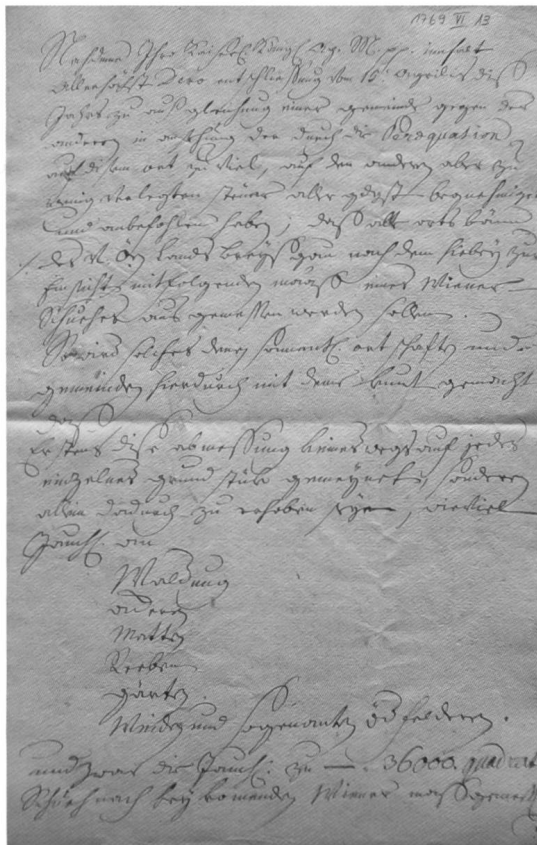 1769 VI 13
Nachdeme Ihro Kaiserl. Königl. Ap. M. pp. innhalt
Allerhöchst Dero entschliessung vom 15 Aprilis diss
Jahrs zu aussgleichung einer gemeinde gegen der
anderen in ansehung der durch die Peraequation
auf disem ort zu viel, auf den anderen aber zu
wenig verlegten steur aller gdgst begnehmiget
und anbefohlen haben, dass alle orts bänn
des V. Ö. Lands Breyssgau nach dem hiebey zur
Einsicht mitfolgenden maass eines Wiener
Schuches aus gemessen werden sollen.
So wird solches denen ortschafften und
gemeinden hierdurch mit deme kunt gemacht
dass
Erstens dise abmessung keines wegs auf jedes
einzelnes grund stück gemeynet, sonderen
allein dadurch zu erheben seye, wieviel
Jauch. an
Waldung
äckeren
Matten
Reeben
gärten.
Weiden und sogenannten ödfelderen.
und zwar die Jauch. zu — . 36000. quadrat
Schuch nach bey komenden Wiener maass